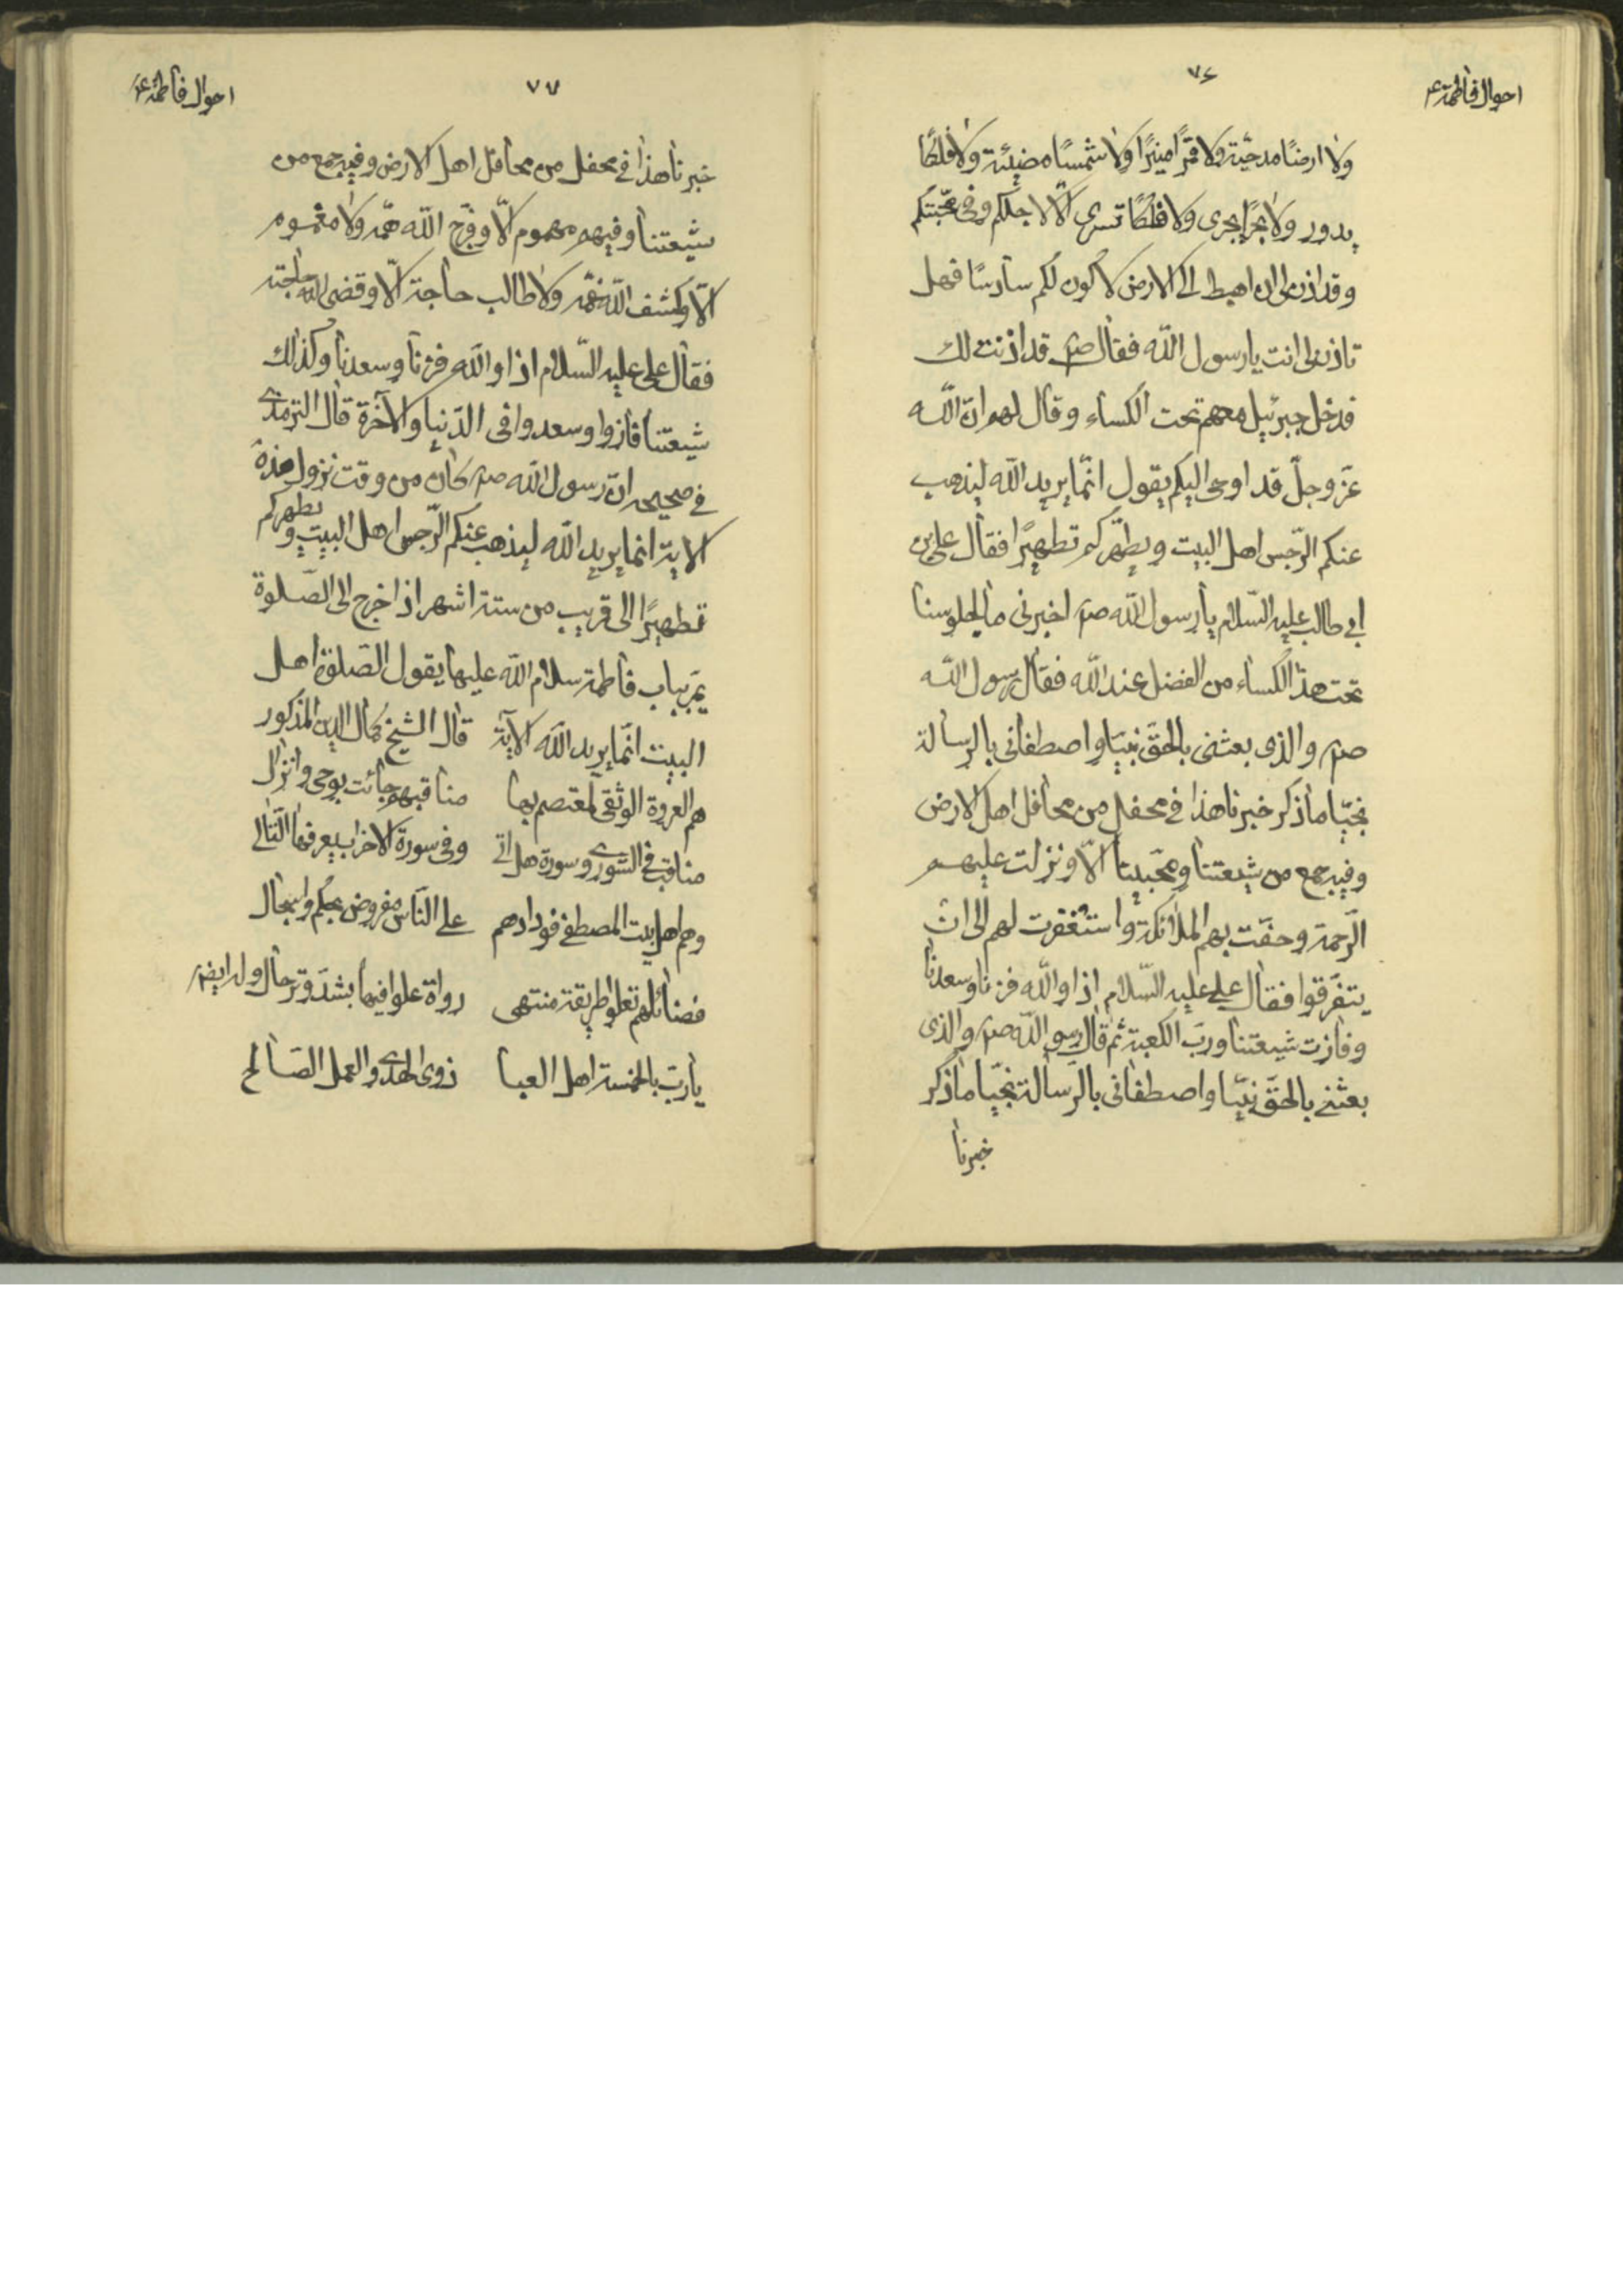 احوال فاطمة ع
٧٦
ولا ارضًا مدحيّة ولا قمرًا منيرًا ولا شمسًا مضيئة ولا فلكًا
يدور ولا بحرًا يجرى ولا فلكًا تسرى الّا لاجلكم وفى محبّتكم
وقد اذن لى ان اهبط الى الارض لاكون لكم سادسًا فهل
تاذن لى انت يا رسول اللّه فقال ص قد اذنت لك
فدخل جبرئيل معهم تحت الكساء وقال لهم انّ اللّه
عزّ وجلّ قد اوحى اليكم يقول انّما يريد اللّه ليذهب
عنكم الرّجس اهل البيت ويطهّركم تطهيرًا فقال على بن
ابى طالب عليه السّلام يا رسول اللّه ص اخبرنى ما لجلوسنا
تحت هذا الكساء من الفضل عند اللّه فقال رسول اللّه
ص والذى بعثنى بالحقّ نبيّا واصطفانى بالرسالة
نجيّا ما ذكر خبرنا هذا فى محفل من محافل اهل الارض
وفيه جمع من شيعتنا ومحبّينا الّا ونزلت عليهم
الرّحمة وحفّت بهم الملائكة واستغفرت لهم الى ان
يتفرّقوا فقال على عليه السّلام اذا واللّه فزنا وسعدنا
وفازت شيعتنا وربّ الكعبة ثم قال رسول اللّه ص والذى
بعثنى بالحقّ نبيّا واصطفانى بالرّسالة نجيّا ما ذكر
خبرنا
٧٧
احوال فاطمة ع
خبرنا هذا فى محفل من محافل اهل الارض وفيه جمع من
شيعتنا وفيهم مهموم الّا وفرّج اللّه همّه ولا مغموم
الّا وكشف اللّه غمّه ولا طالب حاجة الّا وقضى اللّه حاجته
فقال على عليه السّلام اذا واللّه فزنا وسعدنا وكذلك
شيعتنا فازوا وسعدوا فى الدّنيا والآخرة قال الترمذى
فى صحيحه انّ رسول اللّه ص كان من وقت نزول هذه
الاية انما يريد اللّه ليذهب عنكم الرّجس اهل البيت ويطهركم
تطهيرًا الى قريب من ستة اشهر اذا خرج الى الصّلوة
يمرّ بباب فاطمة سلام اللّه عليها يقول الصّلوة اهل
البيت انّما يريد اللّه الآية قال الشيخ كمال الدين المذكور
هم العروة الوثقى لمعتصم بها مناقبهم جائت بوحى وانزال
مناقب فى الشورى وسورة هل اتى وفى سورة الاحزاب يعرفها التّالى
وهم اهل بيت المصطفى فودادهم على النّاس مفروض بحكم واسجال
فضائلهم تعلوا طريقة منتهى رواة علوا فيها بشدّ وترحال وله ايضا
يا ربّ بالخمسة اهل العبا ذوى الهدى والعمل الصّالح